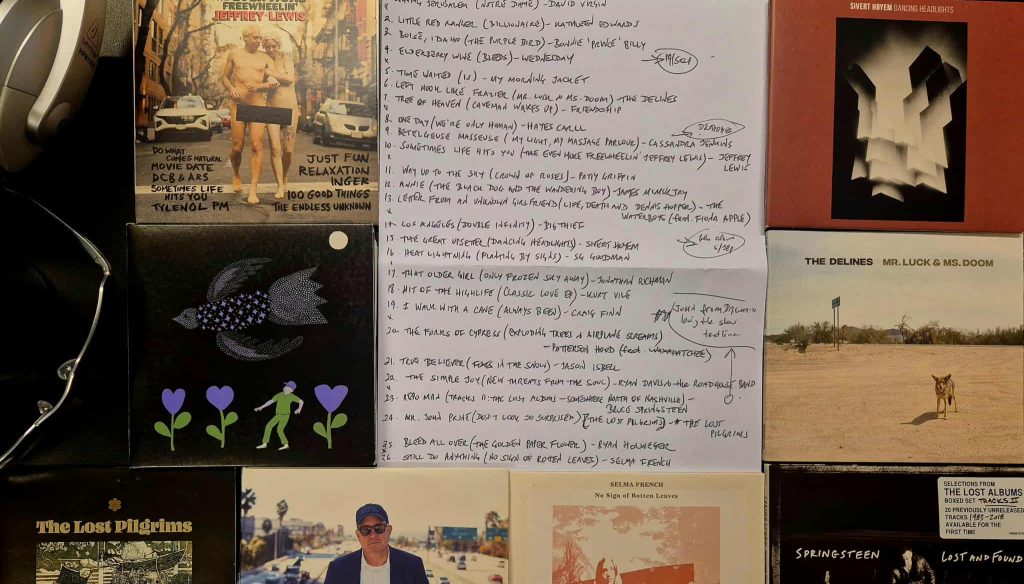 FREEWHEELIN'
JEFFREY LEWIS
DO WHAT
COMES NATURAL
MOVIE DATE
DCB & ARS
SOMETIMES LIFE
HITS YOU
TYLENOL PM
JUST FUN
RELAXATION
INGER
100 GOOD THINGS
THE ENDLESS UNKNOWN
JERUSALEM (NOTRE DAME) - DAVID VIRGIN
2. LITTLE RED RANGER (BILLIONAIRE) - KATHLEEN EDWARDS
3. BOISE, IDAHO (THE PURPLE BIRD) - BONNIE 'PRINCE' BILLY
4. ELDERBERRY WINE (BLEEDS) - WEDNESDAY
19/SEP
5. TIME WAITED (IS) - MY MORNING JACKET
6. LEFT HOOK LIKE FRAZIER (MR. LUCK & MS. DOOM) - THE DELINES
7. TREE OF HEAVEN (CAVEMAN WAKES UP) - FRIENDSHIP
8. ONE DAY (WE'RE ONLY HUMAN) - HAYES CARLL
9. BETELGEUSE MASSEUSE (MY LIGHT, MY MASSAGE PARLOUR) - CASSANDRA JENKINS
10. SOMETIMES LIFE HITS YOU (THE EVEN MORE FREEWHEELIN' JEFFREY LEWIS) - JEFFREY
LEWIS
11. WAY UP TO THE SKY (CROWN OF ROSES) - PATTY GRIFFIN
12. ANNIE (THE BLACK DOG AND THE WANDERING BOY) - JAMES MCMURTRY
13. LETTER FROM AN UNKNOWN GIRLFRIEND (LIFE, DEATH AND DENNIS HOPPER) - THE
WATERBOYS (feat. FIONA APPLE)
14. LOS ANGELES (DOUBLE INFINITY) - BIG THIEF
15. THE GREAT UPSETTER (DANCING HEADLIGHTS) - SIVERT HØYEM
16. HEAT LIGHTNING (PLANTING BY SIGNS) - SG GOODMAN
17. THAT OLDER GIRL (ONLY FROZEN SKY AWAY) - JONATHAN RICHMAN
18. HIT OF THE HIGHLIFE (CLASSIC LOVE EP) - KURT VILE
19. I WALK WITH A CANE (ALWAYS BEEN) - CRAIG FINN
20. THE FORKS OF CYPRESS (EXPLODING TREES & AIRPLANE SCREAMS)
- PATTERSON HOOD (feat. WAXAHATCHEE)
21. TRUE BELIEVER (FOXES IN THE SNOW) - JASON ISBELL
22. THE SIMPLE JOY (NEW THREATS FROM THE SOUL) - RYAN DAVIS & the ROADHOUSE BAND
23. REPO MAN (TRACKS II: THE LOST ALBUMS - SOMEWHERE NORTH OF NASHVILLE) -
BRUCE SPRINGSTEEN
24. MR. JOHN PRINE (DON'T LOOK SO SURPRISED) [THE LOST PILGRIMS] - THE LOST
PILGRIMS
25. BLEED ALL OVER (THE GOLDEN PAPER FLOWER) - RYAN
26. STILL DO ANYTHING (NO SIGN OF ROTTEN LEAVES) - SELMA FRENCH
SIVERT HØYEM DANCING HEADLIGHTS
THE DELINES MR. LUCK & MS. DOOM
The Lost Pilgrims
SELMA FRENCH
No Sign of Rotten Leaves
SELECTIONS FROM
THE LOST ALBUMS
BOXED SET TRACKS II
20 PREVIOUSLY UNRELEASED
TRACKS 1983-2018
AVAILABLE FOR THE
FIRST TIME
SPRINGSTEEN
LOST AND FOUND